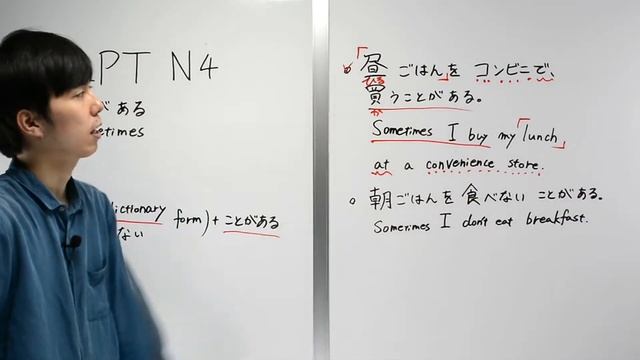 PT N4
ある
ictionary form) + ことがある
ない
「昼ごはん」を コンビニで、
ひる
買うことがある。
か
Sometimes I buy my 「lunch」
at a convenience store.
朝ごはんを食べない ことがある。
Somerimes I don't eat breakfast.